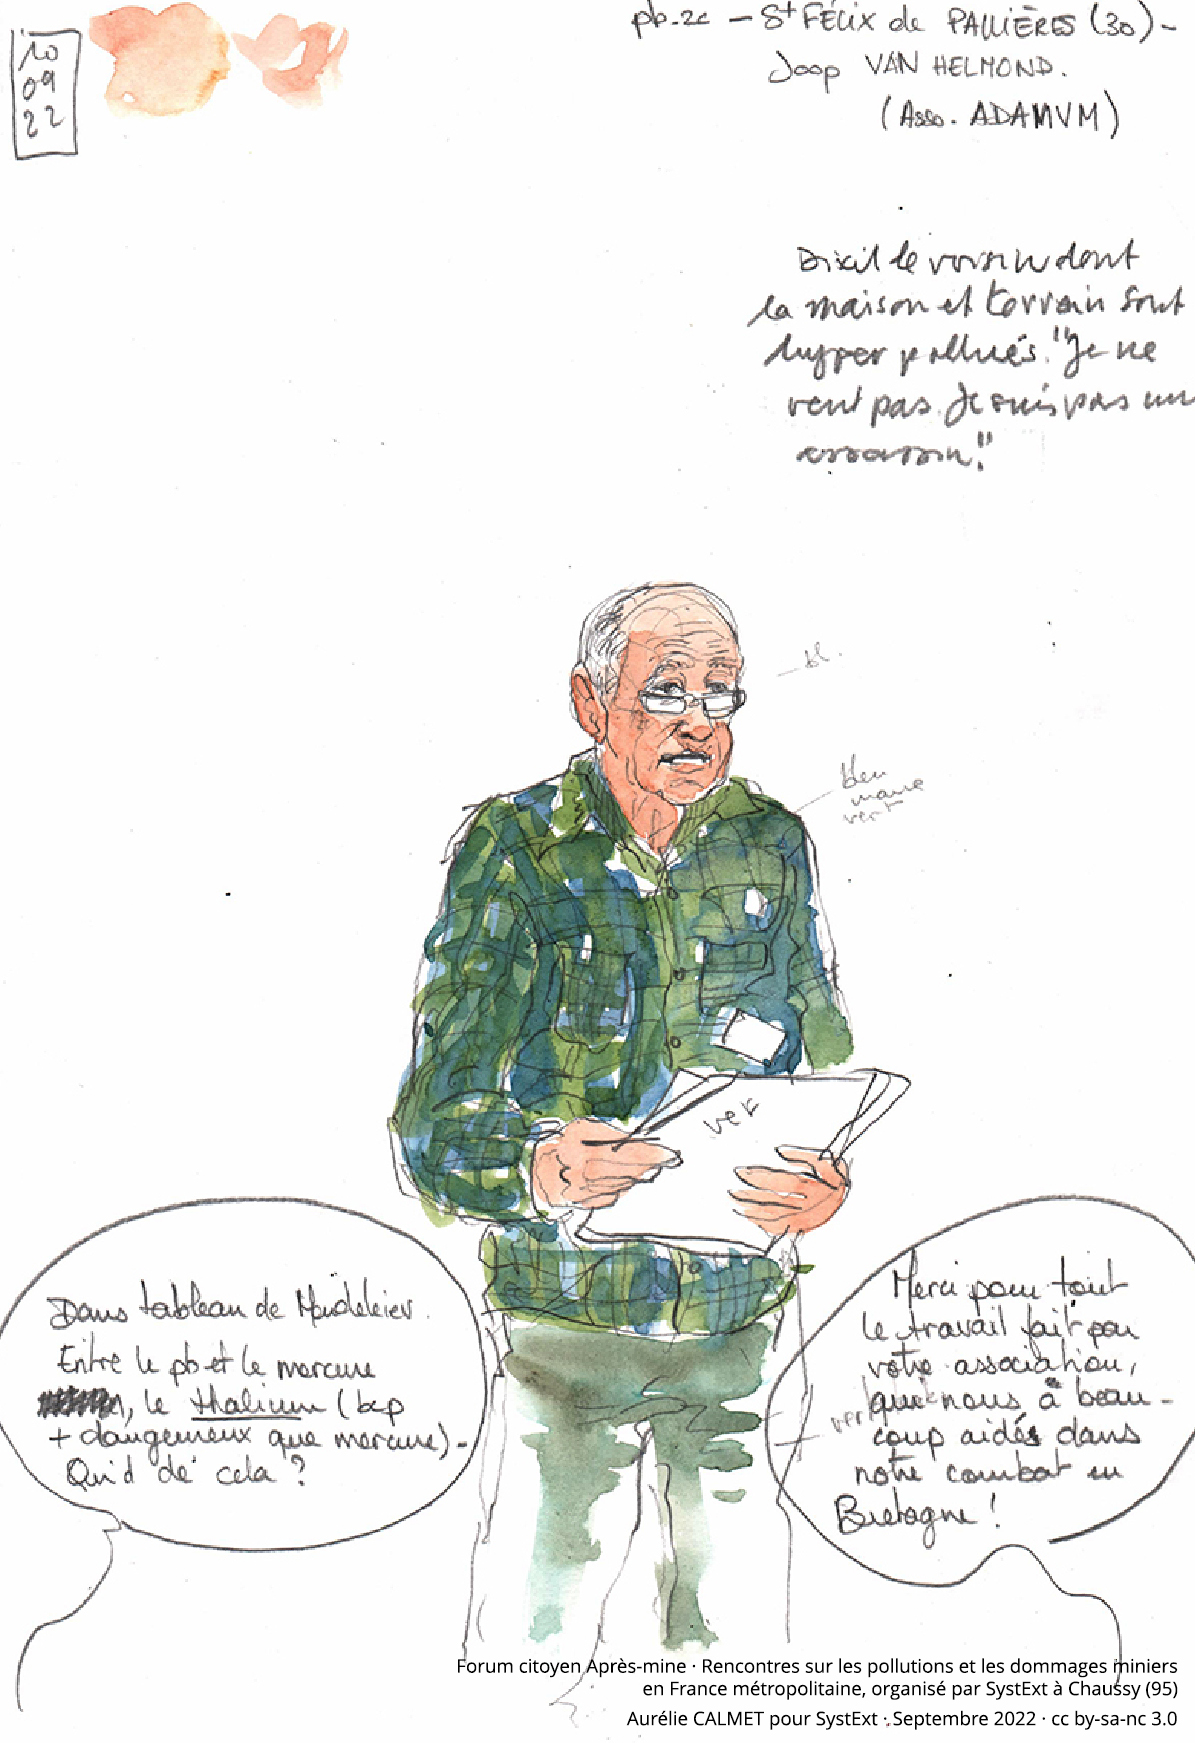 10
09
22
pb-zc - St FÉLIX de PALLIÈRES (30) -
Joop VAN HELMOND.
(Asso. ADAMVM)
Dixit le voisin dont
la maison et terrain sont
hyper pollués. "Je ne
vent pas. Je suis pas un
assassin."
bl.
bleu
mauve
vert
ver
Dans tableau de Mendeleiev.
Entre le pb et le mercure
, le thalium (bcp
+ dangereux que mercure) -
Quid de cela ?
Merci pour tout
le travail fait par
votre association,
qui nous a beau-
coup aidés dans
notre combat en
Bretagne !
Forum citoyen Après-mine · Rencontres sur les pollutions et les dommages miniers
en France métropolitaine, organisé par SystExt à Chaussy (95)
Aurélie CALMET pour SystExt · Septembre 2022 · cc by-sa-nc 3.0